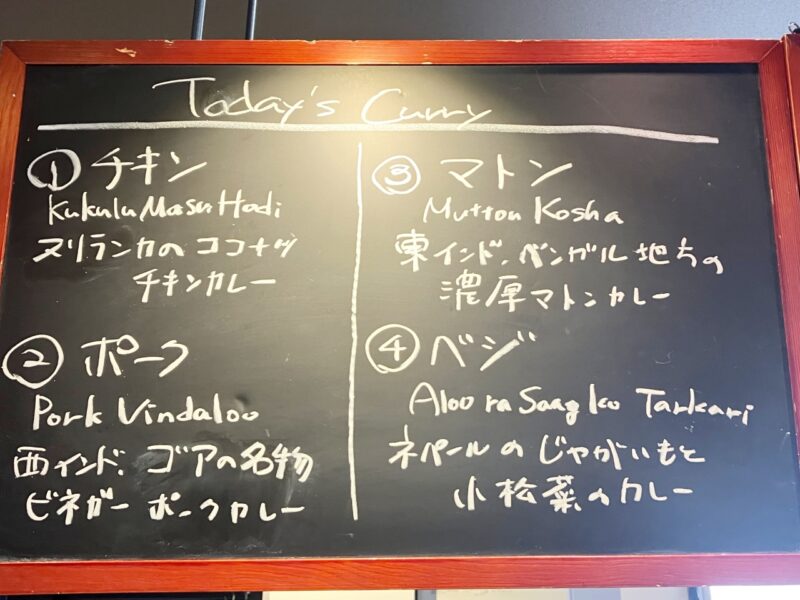 Today's Curry
① チキン
Kukulu Masu Hodi
スリランカのココナッツ
チキンカレー
② ポーク
Pork Vindaloo
西インド、ゴアの名物
ビネガーポークカレー
③ マトン
Mutton Kosha
東インド、ベンガル地方の
濃厚マトンカレー
④ ベジ
Aloo ra Saag ko Tarkari
ネパールのじゃがいもと
小松菜のカレー